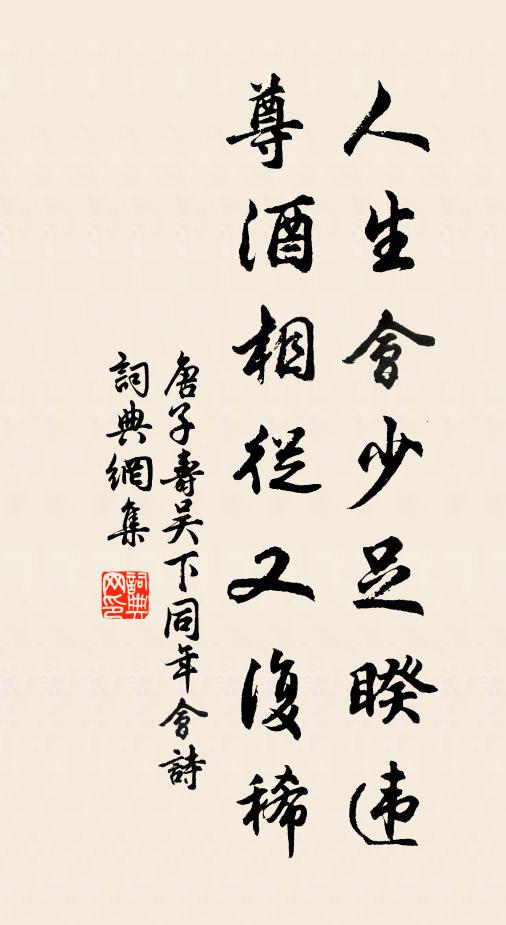 人生會少足睽違
尊酒相從又復稀
唐子壽吴下同年會詩
詞典網集
詞典網印